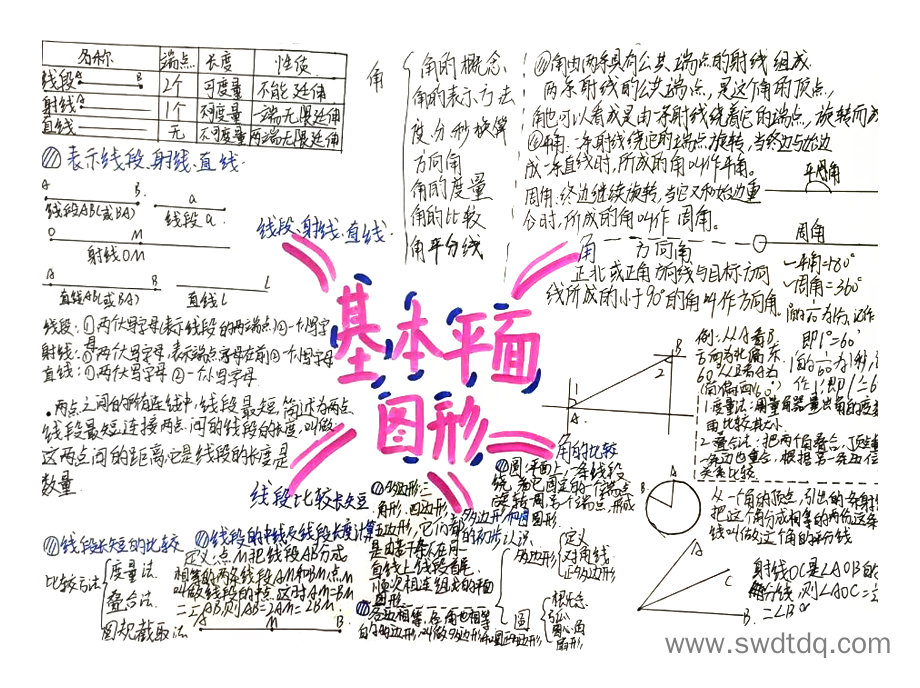 名称 端点 长度 性质
线段 A B 2个 可度量 不能延伸
射线 A 1个 不可度量 一端无限延伸
直线 无 不可度量 两端无限延伸
表示线段、射线、直线
A B a
线段AB(或BA) 线段a
O M
射线OM
A B
直线AB(或BA) 直线l l
线段:①两个大写字母(表示线段的两端点)②一个小写字母
射线:①两个大写字母,表示端点字母在前②一个小写字母
直线:①两个大写字母②一个小写字母
两点之间的所有连线中,线段最短,简述为两点
线段最短.连接两点间的线段的长度,叫做
这两点间的距离,它是线段的长度是
数量
线段、射线、直线
角
角的概念
角的表示方法
度、分、秒换算
方向角
角的度量
角的比较
角平分线
角由两条具有公共端点的射线组成
两条射线的公共端点,是这个角的顶点,
角也可以看成是由一条射线绕着它的端点,旋转而成
平角:一条射线绕它的端点旋转,当终边与始边
成一条直线时,所成的角叫作平角。
周角:终边继续旋转,当它又和始边重
合时,所成的角叫作周角。
平周角
周角
角 方向角
正北或正角方向线与目标方向
线所成的小于90°的角叫作方向角
一平角=180°
一周角=360°
即1°=60′
基本平面
图形
例:从A看B
1
A
2
B
1.度量法:用量角器量出角的度
由比较大小
2.叠合法:把两个角叠合,顶点重
一条边也重合,根据另一条边位
关系比较
角的比较
A
从一个角的顶点,引出的一条射
把这个角分成相等的两份这条
线叫做这个角的平分线
A
C
B
射线OC是∠AOB的
平分线,则∠AOC=
线段比较长短
线段长短的比较
比较方法
度量法
叠合法
圆规截取法
线段的中线及线段长度计算
定义:点M把线段AB分成
相等的两条线段AM和BM点M
叫做线段的中点.这时AM=BM
AB则AB=2AM=2BM
A M B
多边形:三
角形,四边形,
五边形,它们都
是由若干条不在同一
直线上线段首尾
顺次相连组成的平面
图形
各边相等,各角也相等
的多边形叫做正多边形
圆:平面上,一条线段
绕着它固定的一个端点
旋转一周,另一个端点形成
的图形
多边形和圆
的初步认识
多边形
定义
对角线
正多边形
圆
概念
弧
圆心角
扇形
www.swdtdq.com